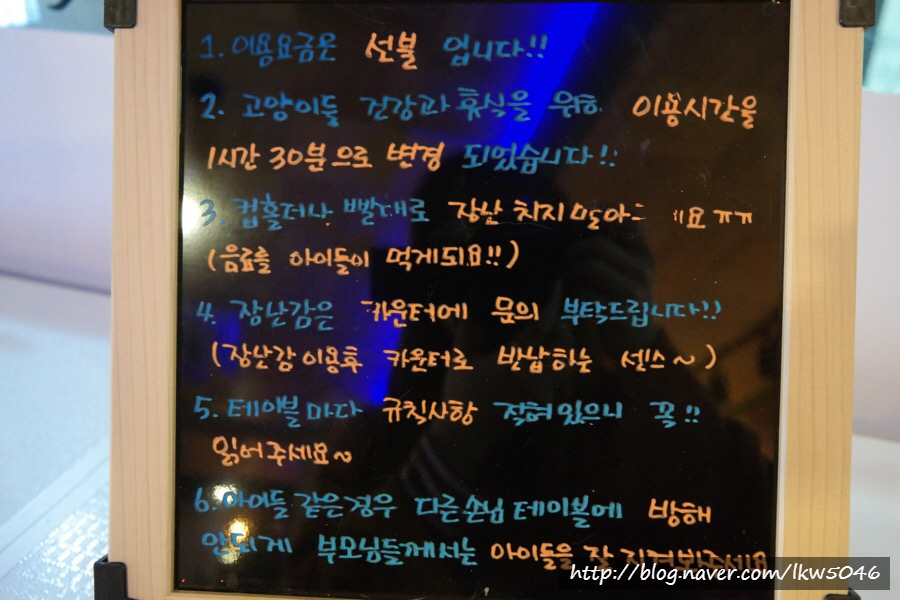 1. 이용요금은 선불 입니다!!
2. 고양이들 건강과 휴식을 위해 이용시간을
1시간 30분으로 변경 되었습니다!!
3. 컵홀더나 빨대로 장난 치지 말아 요 ㅠㅠ
(음료를 아이들이 먹게되요!!)
4. 장난감은 카운터에 문의 부탁드립니다!!
(장난감 이용후 카운터로 반납하는 센스~)
5. 테이블마다 규칙사항 적혀있으니 꼭!!
읽어주세요~
6. 아이들 같은경우 다른손님 테이블에 방해
안되게 부모님들께서는 아이들을 잘 지켜봐주세요
http://blog.naver.com/lkw5046